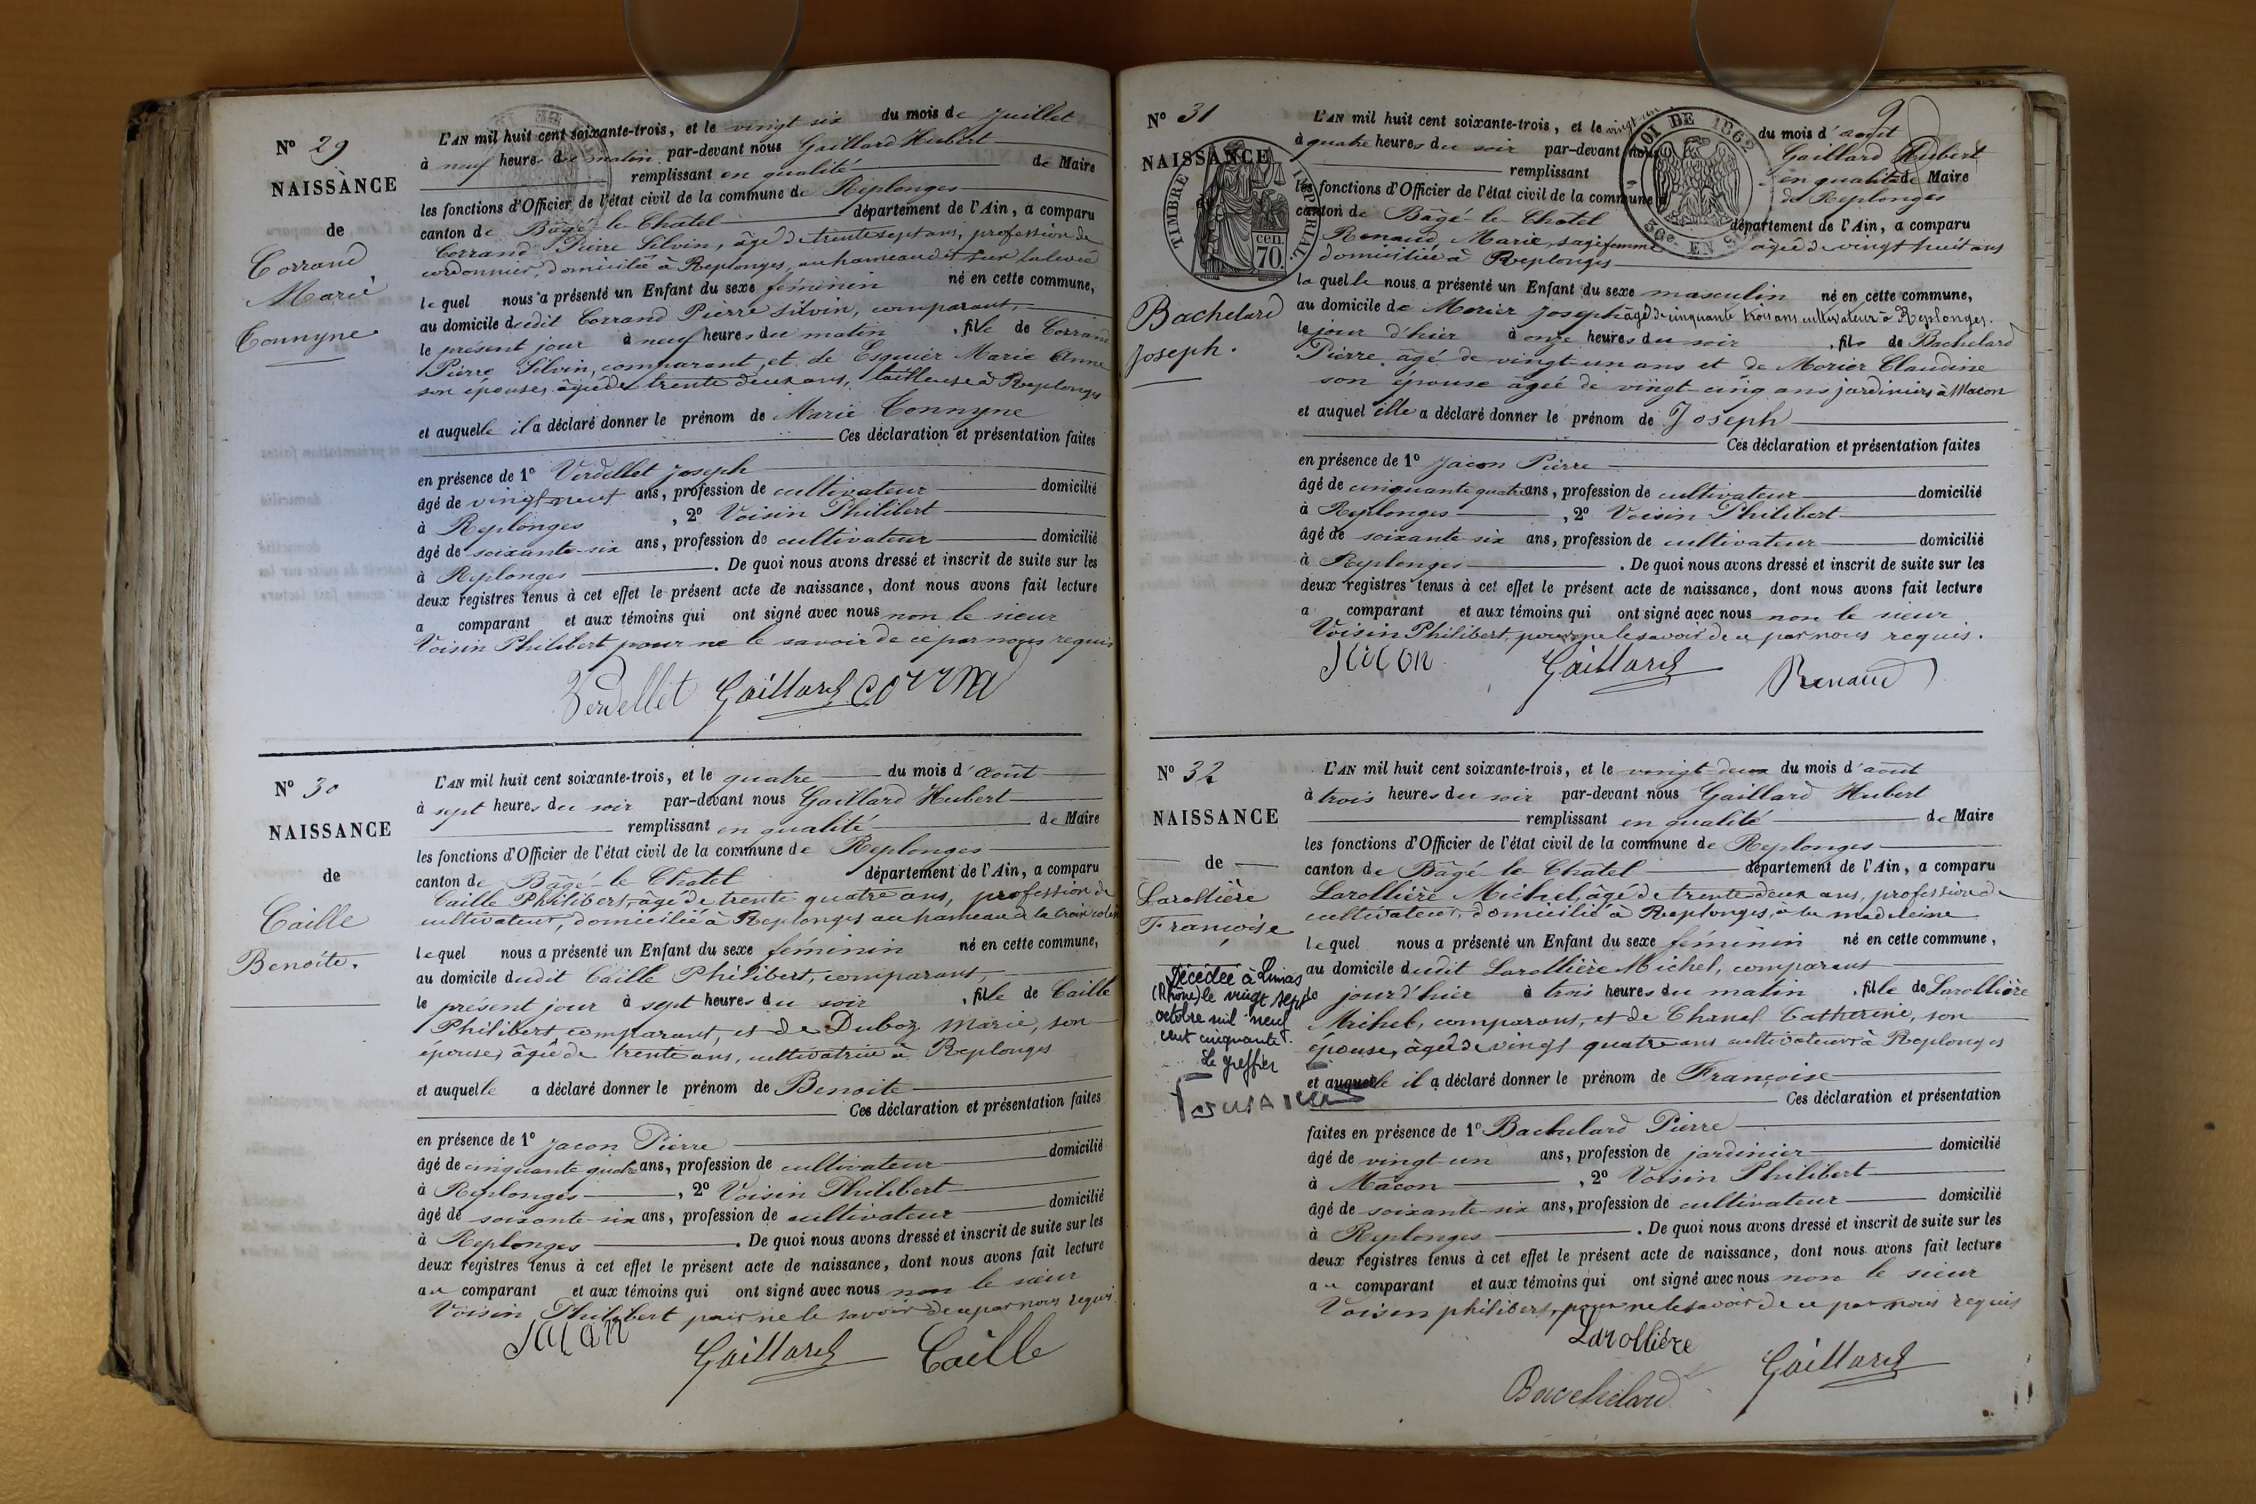 N° 29
NAISSANCE
de
Corrand
Marie
Connyne
L'AN mil huit cent soixante-trois, et le vingt six du mois de juillet
à neuf heures du matin par-devant nous Gaillard Hubert
remplissant en qualité de Maire
les fonctions d'Officier de l'état civil de la commune de Replonges
canton de Bâgé-le-Chatel département de l'Ain, a comparu
Corrand Pierre Silvin, âgé de trente sept ans, profession de
cordonnier, domicilié à Replonges, au hameau dit sur la levée
lequel nous a présenté un Enfant du sexe féminin né en cette commune,
au domicile dudit Corrand Pierre Silvin, comparant,
le présent jour à neuf heures du matin, fille de Corrand
Pierre Silvin, comparant, et de Esquier Marie Anne
son épouse, âgée de trente deux ans, tailleuse à Replonges
et auquelle il a déclaré donner le prénom de Marie Connyne
Ces déclaration et présentation faites
en présence de 1° Verdellet joseph
âgé de vingt neuf ans, profession de cultivateur domicilié
à Replonges, 2° Voisin Philibert
âgé de soixante-six ans, profession de cultivateur domicilié
à Replonges. De quoi nous avons dressé et inscrit de suite sur les
deux registres tenus à cet effet le présent acte de naissance, dont nous avons fait lecture
a comparant et aux témoins qui ont signé avec nous non le sieur
Voisin Philibert pour ne le savoir de ce par nous requis
Verdellet Gaillard
N° 30
NAISSANCE
de
Caille
Benoite.
L'AN mil huit cent soixante-trois, et le quatre du mois d'août
à sept heures du soir par-devant nous Gaillard Hubert
remplissant en qualité de Maire
les fonctions d'Officier de l'état civil de la commune de Replonges
canton de Bâgé-le-Chatel département de l'Ain, a comparu
Caille Philibert, âgé de trente quatre ans, profession de
cultivateur, domicilié à Replonges au hameau de la croix
lequel nous a présenté un Enfant du sexe féminin né en cette commune,
au domicile dudit Caille Philibert, comparant,
le présent jour à sept heures du soir, fille de Caille
Philibert comparant, et de Duboz Marie, son
épouse, âgée de trente ans, cultivatrice à Replonges
et auquelle a déclaré donner le prénom de Benoite
Ces déclaration et présentation faites
en présence de 1° Jacon Pierre
âgé de cinquante quatre ans, profession de cultivateur domicilié
à Replonges, 2° Voisin Philibert
âgé de soixante-six ans, profession de cultivateur domicilié
à Replonges. De quoi nous avons dressé et inscrit de suite sur les
deux registres tenus à cet effet le présent acte de naissance, dont nous avons fait lecture
au comparant et aux témoins qui ont signé avec nous non le sieur
Voisin Philibert pour ne le savoir de ce par nous requis
Jacon Gaillard Caille
N° 31
NAISSANCE
TIMBRE IMPERIAL
cen. 70.
LOI DE 1862
50c EN S
Bachelard
Joseph.
L'AN mil huit cent soixante-trois, et le du mois d'août
à quatre heures du soir par-devant nous Gaillard Hubert
remplissant en qualité de Maire
les fonctions d'Officier de l'état civil de la commune de Replonges
canton de Bâgé-le-Chatel département de l'Ain, a comparu
Renaud, Marie, sage femme âgée de vingt huit ans
domiciliée à Replonges
laquelle nous a présenté un Enfant du sexe masculin né en cette commune,
au domicile de Morier joseph âgé de cinquante trois ans cultivateur à Replonges.
le jour d'hier à onze heures du soir, fils de Bachelard
Pierre âgé de vingt-un ans et de Morier Claudine
son épouse âgée de vingt-cinq ans jardiniers à Macon
et auquel elle a déclaré donner le prénom de Joseph
Ces déclaration et présentation faites
en présence de 1° Jacon Pierre
âgé de cinquante quatre ans, profession de cultivateur domicilié
à Replonges, 2° Voisin Philibert
âgé de soixante-six ans, profession de cultivateur domicilié
à Replonges. De quoi nous avons dressé et inscrit de suite sur les
deux registres tenus à cet effet le présent acte de naissance, dont nous avons fait lecture
a comparant et aux témoins qui ont signé avec nous non le sieur
Voisin Philibert, pour ne le savoir de ce par nous requis.
Jacon Gaillard Renaud
N° 32
NAISSANCE
de
Larollière
Françoise
Décédée à Limas
(Rhône) le vingt sept
octobre mil neuf
cent cinquante.
Le Greffier
L'AN mil huit cent soixante-trois, et le vingt-deux du mois d'août
à trois heures du soir par-devant nous Gaillard Hubert
remplissant en qualité de Maire
les fonctions d'Officier de l'état civil de la commune de Replonges
canton de Bâgé-le-Chatel département de l'Ain, a comparu
Larollière Michel, âgé de trente-deux ans, profession de
cultivateur, domicilié à Replonges, à la madeleine
lequel nous a présenté un Enfant du sexe féminin né en cette commune,
au domicile dudit Larollière Michel, comparant
le jour d'hier à trois heures du matin, fille de Larollière
Michel, comparant, et de Chanel Catherine, son
épouse, âgée de vingt quatre ans cultivateurs à Replonges
et auquelle il a déclaré donner le prénom de Françoise
Ces déclaration et présentation
faites en présence de 1° Bachelard Pierre
âgé de vingt-un ans, profession de jardinier domicilié
à Macon, 2° Voisin Philibert
âgé de soixante-six ans, profession de cultivateur domicilié
à Replonges. De quoi nous avons dressé et inscrit de suite sur les
deux registres tenus à cet effet le présent acte de naissance, dont nous avons fait lecture
au comparant et aux témoins qui ont signé avec nous non le sieur
Voisin philibert, pour ne le savoir de ce par nous requis
Larollière
Bachelard Gaillard